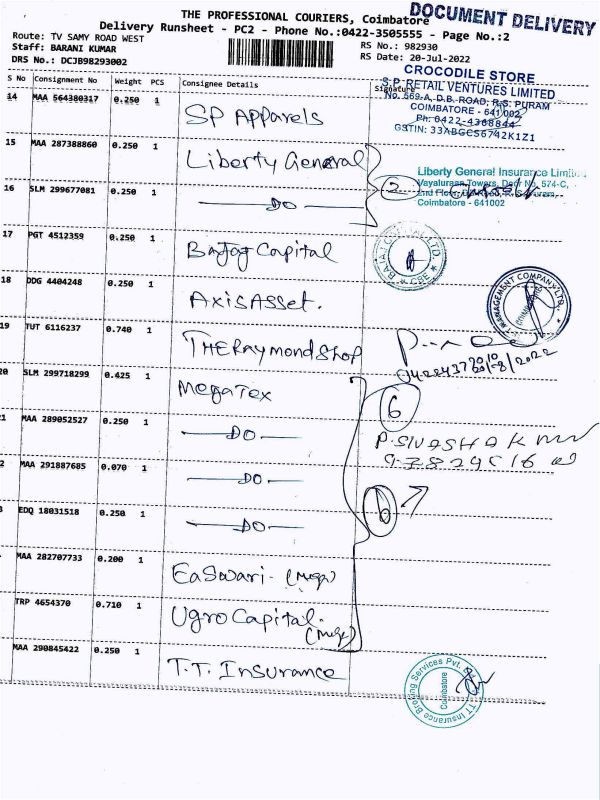 THE PROFESSIONAL COURIERS, Coimbatore
DOCUMENT DELIVERY
Delivery Runsheet - PC2 - Phone No.:0422-3505555 - Page No.:2
Route: TV SAMY ROAD WEST
RS No.: 982930
Staff: BARANI KUMAR
RS Date: 20-Jul-2022
DRS No.: DCJB98293002
CROCODILE STORE
S.P. RETAIL VENTURES LIMITED
No. 569-A, D.B. ROAD, R.S. PURAM
COIMBATORE - 641 002
Ph: 0422-4368844
GSTIN: 33ABGCS6742K1Z1
S No Consignment No Weight PCS Consignee Details Signature
14 MAA 564380317 0.250 1 SP Apparels
15 MAA 287388860 0.250 1 Liberty General
16 SLM 299677081 0.250 1 DO
2
Liberty General Insurance Limited
Vayaluraan Towers, Door No. 574-C,
Coimbatore - 641002
17 PGT 4512359 0.250 1 Bajaj Capital
BAJAJ CAPITAL LTD. CBE
18 DDG 4404248 0.250 1 Axis Asset.
MANAGEMENT COMPANY LTD.
19 TUT 6116237 0.740 1 THE Raymond Shop
20 SLM 299718299 0.425 1 MegaTex
6
1 MAA 289052527 0.250 1 DO
2 MAA 291887685 0.070 1 DO
3 EDQ 18031518 0.250 1 DO
6
MAA 282707733 0.200 1 Easwari - (Mega)
TRP 4654370 0.710 1 Ugro Capital. (Mega)
MAA 290845422 0.250 1 T.T. Insurance
TT Insurance Broking Services Pvt.
Coimbatore